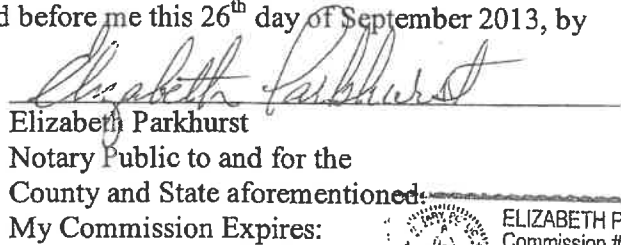 d before me this 26th day of September 2013, by
Elizabeth Parkhurst
Elizabeth Parkhurst
Notary Public to and for the
County and State aforementioned.
My Commission Expires:
ELIZABETH P
Commission #